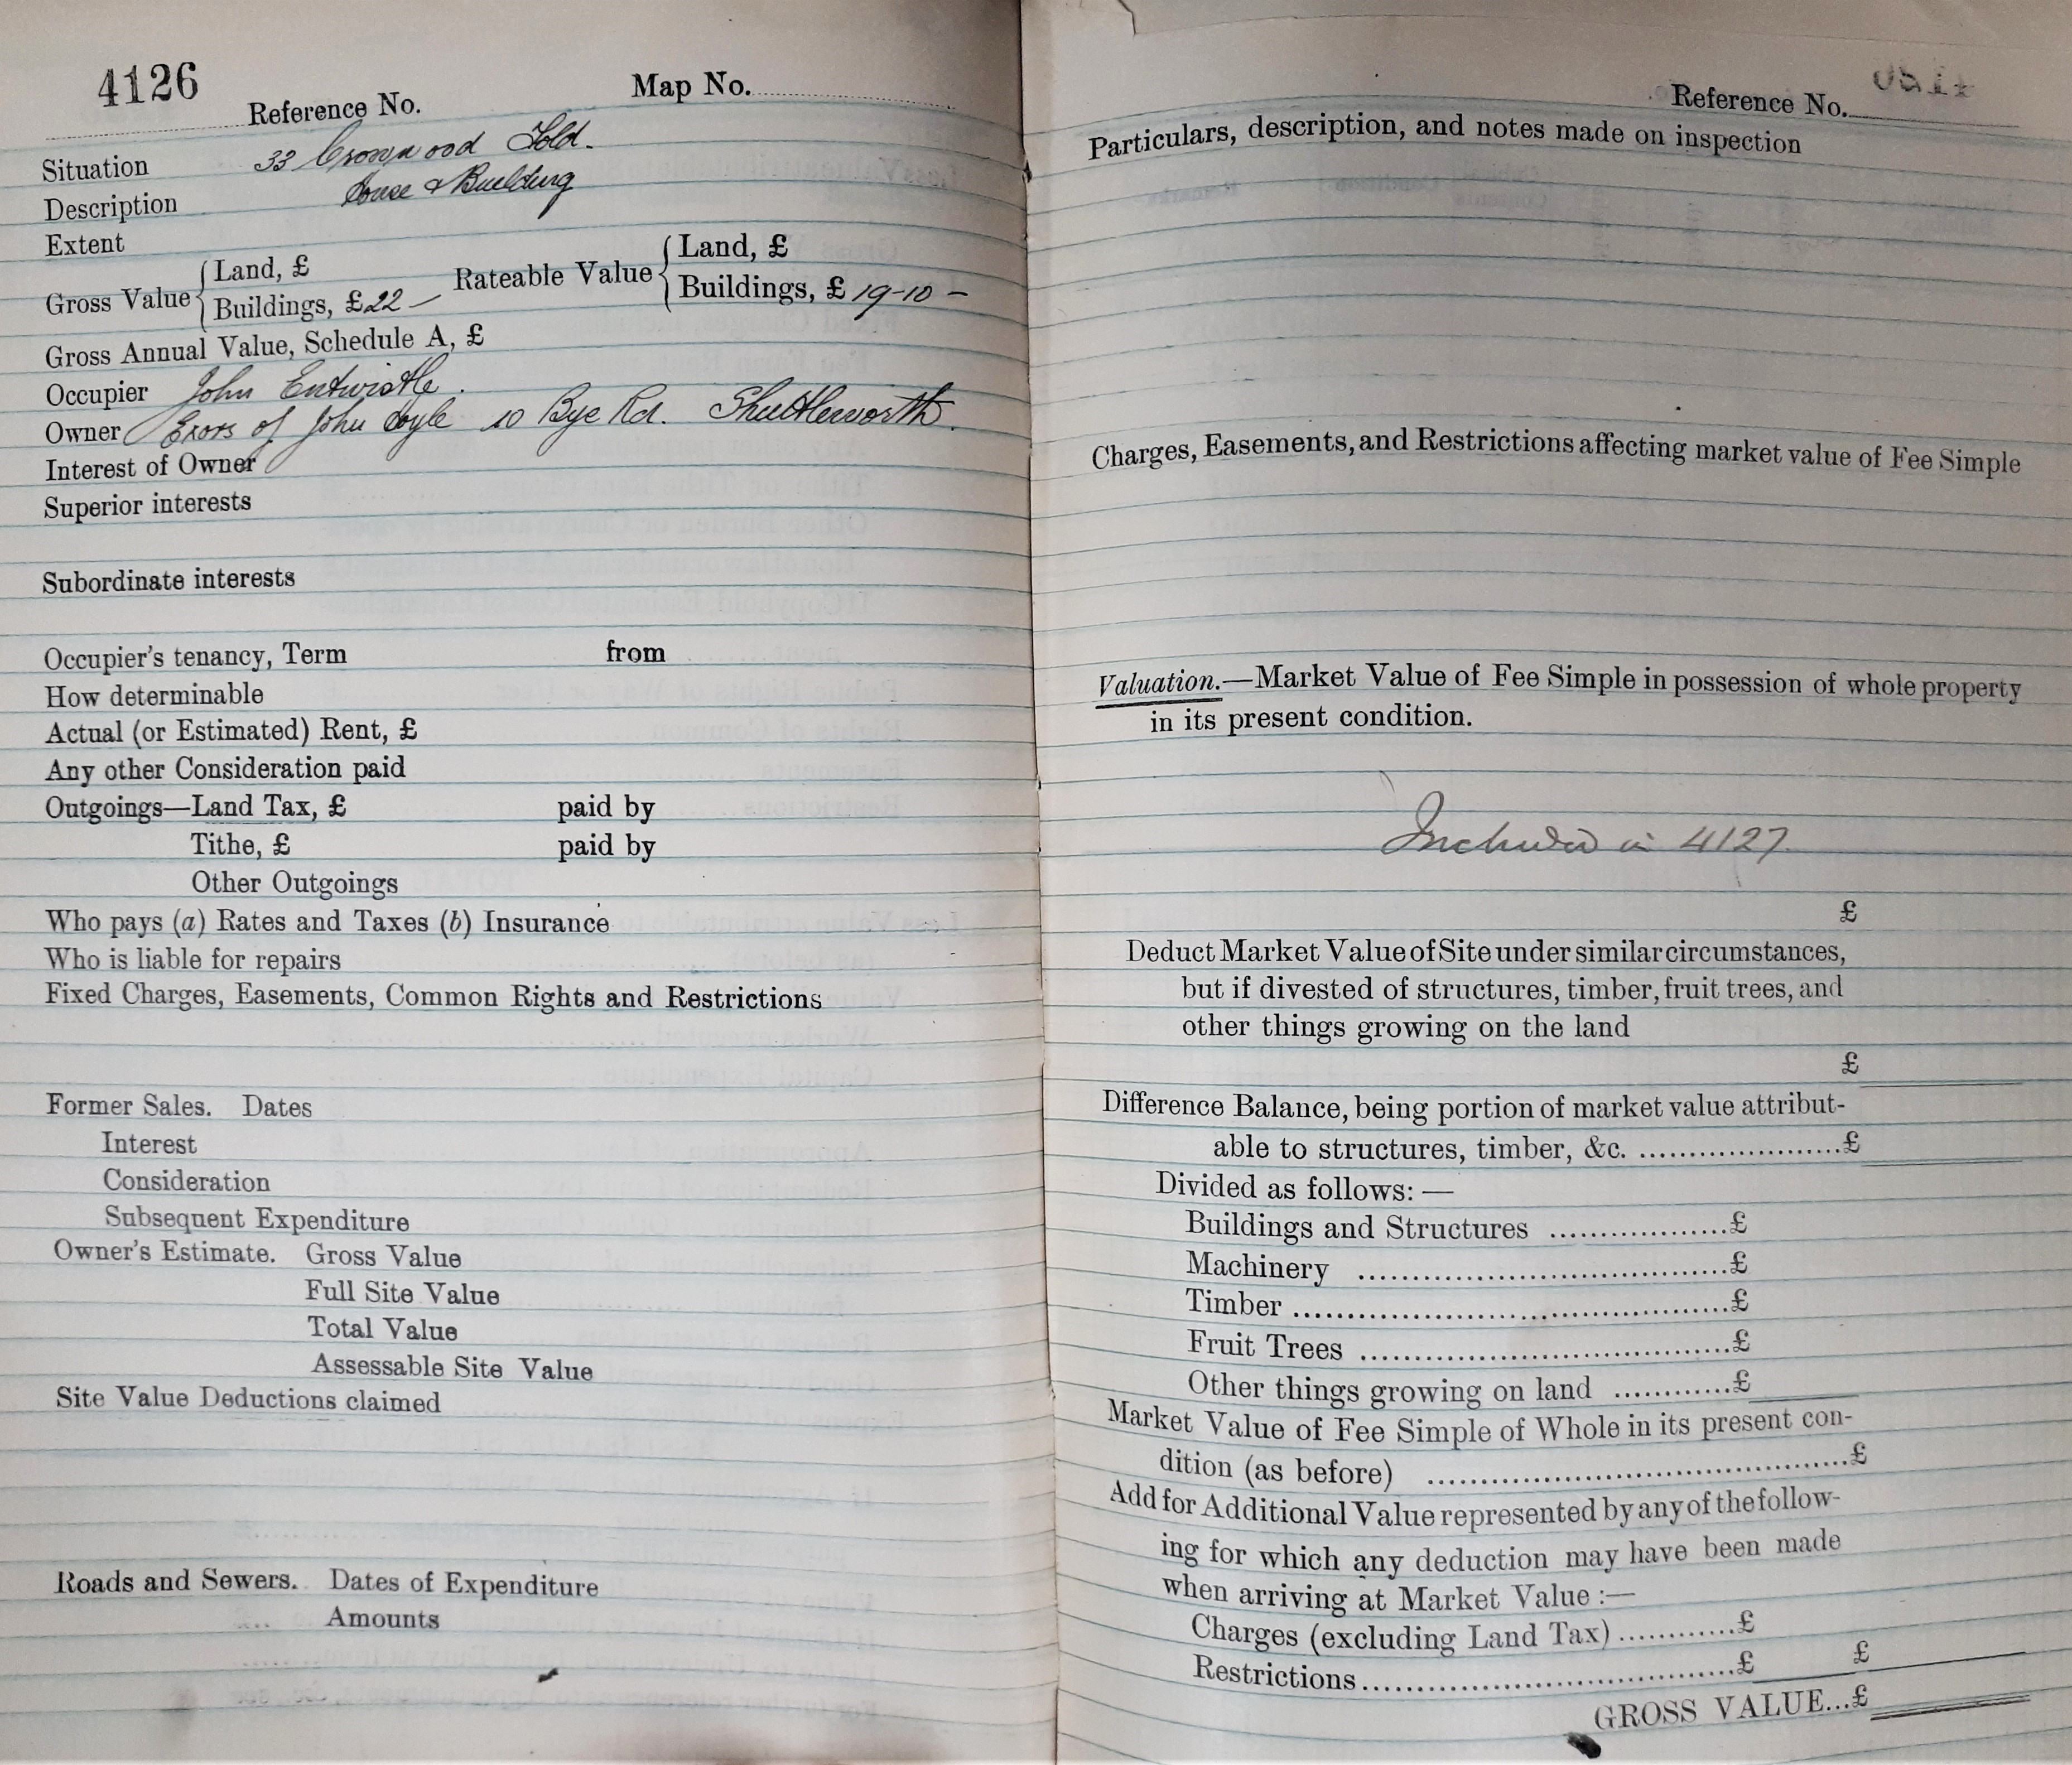 4126
Reference No.
Map No.
Situation 33 Crow wood Fold.
Description House & Building
Extent
Gross Value { Land, £
Buildings, £22 —
Rateable Value { Land, £
Buildings, £ 19-10 –
Gross Annual Value, Schedule A, £
Occupier John Entwistle.
Owner Exors of John 10 Bye Rd. Shuttleworth.
Interest of Owner
Superior interests
Subordinate interests
Occupier's tenancy, Term from
How determinable
Actual (or Estimated) Rent, £
Any other Consideration paid
Outgoings—Land Tax, £ paid by
Tithe, £ paid by
Other Outgoings
Who pays (a) Rates and Taxes (b) Insurance
Who is liable for repairs
Fixed Charges, Easements, Common Rights and Restrictions
Former Sales. Dates
Interest
Consideration
Subsequent Expenditure
Owner's Estimate. Gross Value
Full Site Value
Total Value
Assessable Site Value
Site Value Deductions claimed
Roads and Sewers. Dates of Expenditure
Amounts
Reference No.
Particulars, description, and notes made on inspection
Charges, Easements, and Restrictions affecting market value of Fee Simple
Valuation.—Market Value of Fee Simple in possession of whole property
in its present condition.
Included in 4127.
£
Deduct Market Value of Site under similar circumstances,
but if divested of structures, timber, fruit trees, and
other things growing on the land
£
Difference Balance, being portion of market value attribut-
able to structures, timber, &c. ......................£
Divided as follows: —
Buildings and Structures ..................£
Machinery .....................................£
Timber ...........................................£
Fruit Trees .....................................£
Other things growing on land ............£
Market Value of Fee Simple of Whole in its present con-
dition (as before) ..........................................£
Add for Additional Value represented by any of the follow-
ing for which any deduction may have been made
when arriving at Market Value :—
Charges (excluding Land Tax) ............£
Restrictions.....................................£ £
GROSS VALUE...£